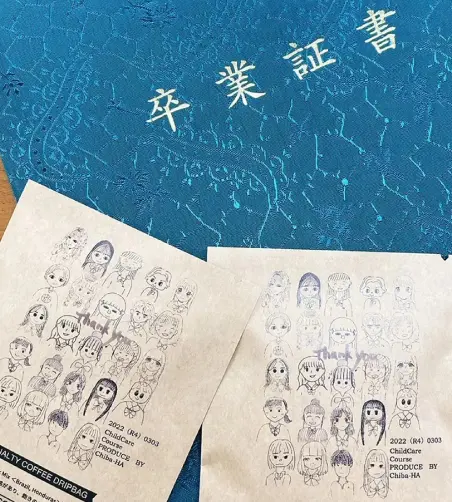 卒業証書
Thank you
2022 (R4) 0303
ChildCare
Course
PRODUCE BY
Chiba-HA
ALTY COFFEE DRIPBAG
Mix <Brazil, Honduras
Thank you
2022 (R4) 0303
ChildCare
Course
PRODUCE BY
Chiba-HA